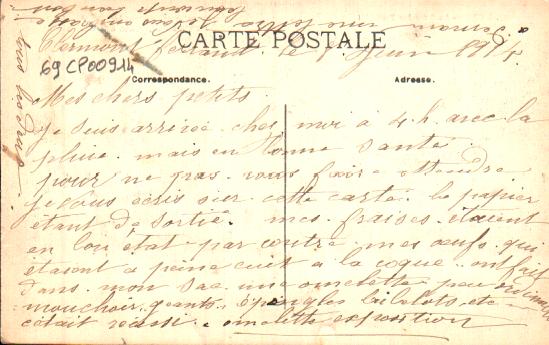 CARTE POSTALE
Clermont Ferrand le juin
69CP00914
Correspondance.
Adresse.
Mes chers petits
je suis arrivée chez moi à 4 h. avec la
pluie. mais en bonne santé
pour ne pas vous faire attendre
je vous écris sur cette carte. le papier
étant de sortie. mes fraises étaient
en bon état par contre mes œufs qui
étaient à peine cuit à la coque ont fait
dans mon sac une omelette peu ordinaire
mouchoir, gants, épingles bibelots, etc
c'était réussi. omelette exposition
une lettre
je vous embrasse